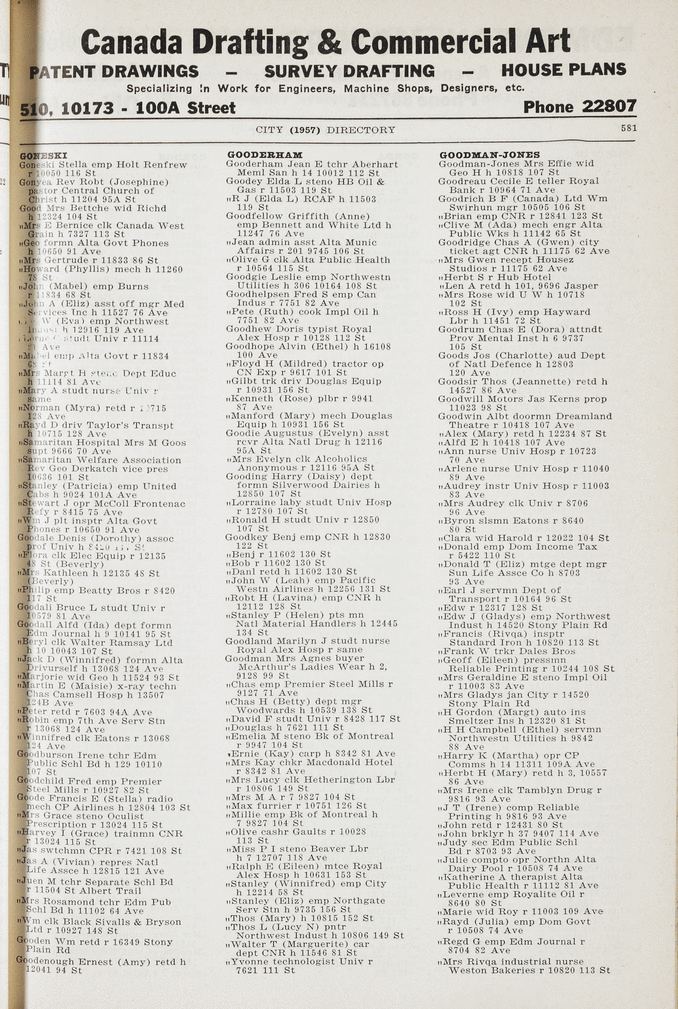 Canada Drafting & Commercial Art
PATENT DRAWINGS — SURVEY DRAFTING — HOUSE PLANS
Specializing in Work for Engineers, Machine Shops, Designers, etc.
510, 10173 - 100A Street Phone 22807
CITY (1957) DIRECTORY 581
GONESKI
Goneski Stella emp Holt Renfrew
r 10050 116 St
Gonyea Rev Robt (Josephine)
pastor Central Church of
Christ h 11204 95A St
Good Mrs Bettche wid Richd
h 12324 104 St
„Mrs E Bernice clk Canada West
Grain h 7327 113 St
„Geo formn Alta Govt Phones
h 10650 91 Ave
„Mrs Gertrude r 11833 86 St
„Howard (Phyllis) mech h 11260
78 St
„John (Mabel) emp Burns
r 11834 68 St
„John A (Eliz) asst off mgr Med
Services Inc h 11527 76 Ave
W (Eva) emp Northwest
h 12916 119 Ave
studt Univ r 11114
Ave
„Mabel emp Alta Govt r 11834
68 St
„Mrs Margt H steno Dept Educ
h 11114 81 Ave
„Mary A studt nurse Univ r
same
„Norman (Myra) retd r 10715
128 Ave
„Rayd D driv Taylor's Transpt
h 10715 128 Ave
„Samaritan Hospital Mrs M Goos
supt 9666 70 Ave
„Samaritan Welfare Association
Rev Geo Derkatch vice pres
10636 101 St
„Stanley (Patricia) emp United
Cabs h 9024 101A Ave
„Stewart J opr McColl Frontenac
Refy r 8415 75 Ave
„Wm J plt insptr Alta Govt
Phones r 10650 91 Ave
Goodale Denis (Dorothy) assoc
prof Univ h
„Flora clk Elec Equip r 12135
48 St (Beverly)
„Mrs Kathleen h 12135 48 St
(Beverly)
„Philip emp Beatty Bros r 8420
117 St
Goodali Bruce L studt Univ r
10579 81 Ave
Goodall Alfd (Ida) dept formn
Edm Journal h 9 10141 95 St
„Beryl clk Walter Ramsay Ltd
h 10 10043 107 St
„Jack D (Winnifred) formn Alta
Drivurself h 13068 124 Ave
„Marjorie wid Geo h 11524 93 St
„Martin E (Maisie) x-ray techn
Chas Camsell Hosp h 13507
124B Ave
„Peter retd r 7603 94A Ave
„Robin emp 7th Ave Serv Stn
r 13068 124 Ave
„Winnifred clk Eatons r 13068
124 Ave
Goodburson Irene tchr Edm
Public Schl Bd h 129 10110
107 St
Goodchild Fred emp Premier
Steel Mills r 10927 82 St
Goode Francis E (Stella) radio
mech CP Airlines h 12804 103 St
„Mrs Grace steno Oculist
Prescription r 13024 115 St
„Harvey I (Grace) trainmn CNR
r 13024 115 St
„Jas swtchmn CPR r 7421 108 St
„Jas A (Vivian) repres Natl
Life Assce h 12815 121 Ave
„Juen M tchr Separate Schl Bd
r 11504 St Albert Trail
„Mrs Rosamond tchr Edm Pub
Schl Bd h 11102 64 Ave
„Wm clk Black Sivalls & Bryson
Ltd r 10927 148 St
Gooden Wm retd r 16349 Stony
Plain Rd
Goodenough Ernest (Amy) retd h
12041 94 St
GOODERHAM
Gooderham Jean E tchr Aberhart
Meml San h 14 10012 112 St
Goodey Elda L steno HB Oil &
Gas r 11503 119 St
„R J (Elda L) RCAF h 11503
119 St
Goodfellow Griffith (Anne)
emp Bennett and White Ltd h
11247 76 Ave
„Jean admin asst Alta Munic
Affairs r 201 9745 106 St
„Olive G clk Alta Public Health
r 10564 115 St
Goodgie Leslie emp Northwestn
Utilities h 306 10164 108 St
Goodhelpsen Fred S emp Can
Indus r 7751 82 Ave
„Pete (Ruth) cook Impl Oil h
7751 82 Ave
Goodhew Doris typist Royal
Alex Hosp r 10128 112 St
Goodhope Alvin (Ethel) h 16108
100 Ave
„Floyd H (Mildred) tractor op
CN Exp r 9617 101 St
„Gilbt trk driv Douglas Equip
r 10931 156 St
„Kenneth (Rose) plbr r 9941
87 Ave
„Manford (Mary) mech Douglas
Equip h 10931 156 St
Goodie Augustus (Evelyn) asst
rcvr Alta Natl Drug h 12116
95A St
„Mrs Evelyn clk Alcoholics
Anonymous r 12116 95A St
Gooding Harry (Daisy) dept
formn Silverwood Dairies h
12850 107 St
„Lorraine laby studt Univ Hosp
r 12780 107 St
„Ronald H studt Univ r 12850
107 St
Goodkey Benj emp CNR h 12830
122 St
„Benj r 11602 130 St
„Bob r 11602 130 St
„Danl retd h 11602 130 St
„John W (Leah) emp Pacific
Westn Airlines h 12256 131 St
„Robt H (Lavina) emp CNR h
12112 128 St
„Stanley P (Helen) pts mn
Natl Material Handlers h 12445
134 St
Goodland Marilyn J studt nurse
Royal Alex Hosp r same
Goodman Mrs Agnes buyer
McArthur's Ladies Wear h 2,
9128 99 St
„Chas emp Premier Steel Mills r
9127 71 Ave
„Chas H (Betty) dept mgr
Woodwards h 10539 138 St
„David F studt Univ r 8428 117 St
„Douglas h 7621 111 St
„Emelia M steno Bk of Montreal
r 9947 104 St
„Ernie (Kay) carp h 8342 81 Ave
„Mrs Kay chkr Macdonald Hotel
r 8342 81 Ave
„Mrs Lucy clk Hetherington Lbr
r 10806 149 St
„Mrs M A r 7 9827 104 St
„Max furrier r 10751 126 St
„Millie emp Bk of Montreal h
7 9827 104 St
„Olive cashr Gaults r 10028
113 St
„Miss P I steno Beaver Lbr
h 7 12707 118 Ave
„Ralph E (Eileen) mtce Royal
Alex Hosp h 10631 153 St
„Stanley (Winnifred) emp City
h 12214 58 St
„Stanley (Eliz) emp Northgate
Serv Stn h 9735 156 St
„Thos (Mary) h 10815 152 St
„Thos L (Lucy N) pntr
Northwest Indust h 10806 149 St
„Walter T (Marguerite) car
dept CNR h 11546 81 St
„Yvonne technologist Univ r
7621 111 St
GOODMAN-JONES
Goodman-Jones Mrs Effie wid
Geo H h 10818 107 St
Goodreau Cecile E teller Royal
Bank r 10964 71 Ave
Goodrich B F (Canada) Ltd Wm
Swirhun mgr 10505 106 St
„Brian emp CNR r 12841 123 St
„Clive M (Ada) mech engr Alta
Public Wks h 11142 65 St
Goodridge Chas A (Gwen) city
ticket agt CNR h 11175 62 Ave
„Mrs Gwen recept Housez
Studios r 11175 62 Ave
„Herbt S r Hub Hotel
„Len A retd h 101, 9696 Jasper
„Mrs Rose wid U W h 10718
102 St
„Ross H (Ivy) emp Hayward
Lbr h 11451 72 St
Goodrum Chas E (Dora) attndt
Prov Mental Inst h 6 9737
105 St
Goods Jos (Charlotte) aud Dept
of Natl Defence h 12803
120 Ave
Goodsir Thos (Jeannette) retd h
14527 86 Ave
Goodwill Motors Jas Kerns prop
11023 98 St
Goodwin Albt doormn Dreamland
Theatre r 10418 107 Ave
„Alex (Mary) retd h 12234 87 St
„Alfd E h 10418 107 Ave
„Ann nurse Univ Hosp r 10723
70 Ave
„Arlene nurse Univ Hosp r 11040
89 Ave
„Audrey instr Univ Hosp r 11003
83 Ave
„Mrs Audrey clk Univ r 8706
96 Ave
„Byron slsmn Eatons r 8640
80 St
„Clara wid Harold r 12022 104 St
„Donald emp Dom Income Tax
r 5422 110 St
„Donald T (Eliz) mtge dept mgr
Sun Life Assce Co h 8703
93 Ave
„Earl J servmn Dept of
Transport r 10164 96 St
„Edw r 12317 128 St
„Edw J (Gladys) emp Northwest
Indust h 14520 Stony Plain Rd
„Francis (Rivqa) insptr
Standard Iron h 10820 113 St
„Frank W trkr Dales Bros
„Geoff (Eileen) pressmn
Reliable Printing r 10244 108 St
„Mrs Geraldine E steno Impl Oil
r 11003 83 Ave
„Mrs Gladys jan City r 14520
Stony Plain Rd
„H Gordon (Margt) auto ins
Smeltzer Ins h 12320 81 St
„H H Campbell (Ethel) servmn
Northwestn Utilities h 9842
88 Ave
„Harry K (Martha) opr CP
Comms h 14 11311 109A Ave
„Herbt H (Mary) retd h 3, 10557
86 Ave
„Mrs Irene clk Tamblyn Drug r
9816 93 Ave
„J T (Irene) comp Reliable
Printing h 9816 93 Ave
„John retd r 12431 80 St
„John brklyr h 37 9407 114 Ave
„Judy sec Edm Public Schl
Bd r 8703 93 Ave
„Julie compto opr Northn Alta
Dairy Pool r 10508 74 Ave
„Katherine A therapist Alta
Public Health r 11112 81 Ave
„Leverne emp Royalite Oil r
8640 80 St
„Marie wid Roy r 11003 109 Ave
„Rayd (Julia) emp Dom Govt
r 10508 74 Ave
„Regd G emp Edm Journal r
8704 82 Ave
„Mrs Rivqa industrial nurse
Weston Bakeries r 10820 113 St